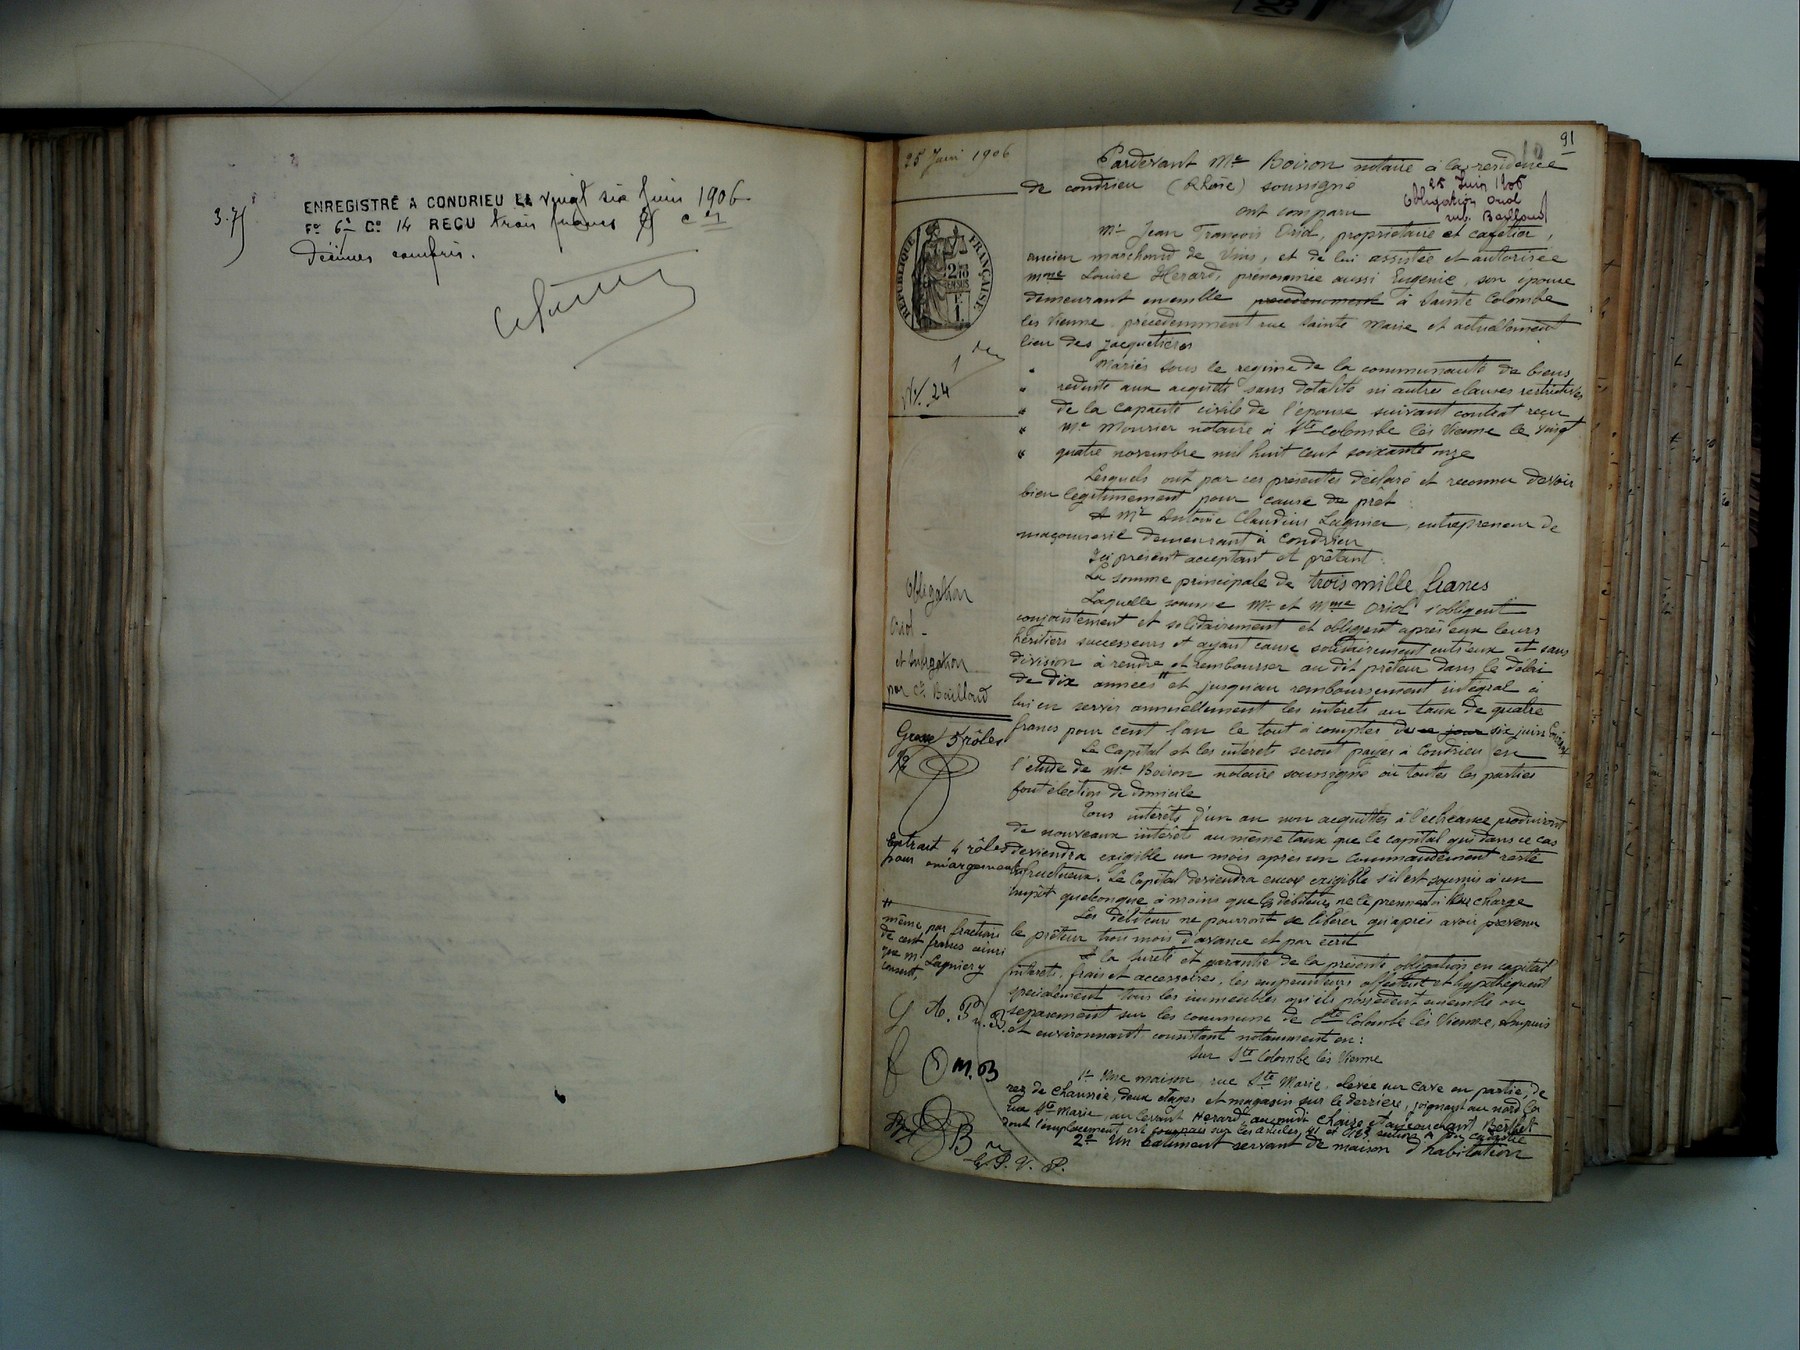 3.75
ENREGISTRÉ A CONDRIEU LE vingt six Juin 1906
Fo 61 Co 14 REÇU trois francs 75 ces
Décimes compris.
91
25 Juin 1906
Pardevant Me Boiron notaire à la résidence
de condrieu (Rhône) soussigné
25 Juin 1906
Obligation Oriol
sub. Baillaud
ont comparu
Mr Jean François Oriol, propriétaire et cafetier,
ancien marchand de Vins, et de lui assistée et autorisée
Mme Louise Herard, prénommée aussi Eugénie, son épouse
demeurant ensemble précédemment à Sainte Colombe
lès Vienne, précédemment rue Sainte Marie et actuellement
lieu des Jacquetières
RÉPUBLIQUE FRANÇAISE
No 24
Mariés sous le régime de la communauté de biens
réduite aux acquêts sans dotalité ni autres clauses restrictives
de la capacité civile de l'épouse suivant contrat reçu
Me Mourier notaire à Ste Colombe lès Vienne le vingt
quatre novembre mil huit cent soixante onze
Lesquels ont par ces présentes déclaré et reconnu devoir
bien légitimement pour cause de prêt :
A Mr Antoine Claudius Lagnier, entrepreneur de
maçonnerie demeurant à Condrieu
Ici présent acceptant et prêtant :
La somme principale de trois mille francs
Laquelle somme Mr et Mme Oriol s'obligent
conjointement et solidairement et obligent après eux leurs
héritiers successeurs et ayant cause solidairement entr'eux et sans
division à rendre et rembourser au dit prêteur dans le délai
de dix années # et jusqu'au remboursement intégral à
lui en servir annuellement les intérêts au taux de quatre
francs pour cent l'an le tout à compter de ce jour six juin courant
Obligation
Oriol -
et subrogation
par Ce Baillaud
Grosse 5 rôles
Le Capital et les intérêts seront payés à Condrieu en
l'étude de Me Boiron notaire soussigné où toutes les parties
font élection de domicile
Tous intérêts d'un an non acquittés à l'échéance produiront
de nouveaux intérêts au même taux que le capital qui dans ce cas
deviendra exigible un mois après un commandement resté
infructueux. Le Capital deviendra encore exigible s'il est soumis à un
impôt quelconque à moins que les débiteurs ne le prennent à leur charge
Extrait 4 rôles
pour émargement
Les débiteurs ne pourront se libérer qu'après avoir prévenu
le prêteur trois mois d'avance et par écrit
# même par fractions
de cent francs ainsi
que Mr Lagnier y
consent,
A la sureté et garantie de la présente obligation en capital
intérêts, frais et accessoires, les emprunteurs affectent et hypothèquent
spécialement tous les immeubles qu'ils possèdent ensemble ou
séparément sur les communes de Ste Colombe lès Vienne, Ampuis
et environnant consistant notamment en :
Sur Ste Colombe lès Vienne
1° Une maison, rue Ste Marie, élevée sur cave en partie, de
rez de chaussée, deux étages et magasin sur le derrière, joignant au nord la
rue Ste Marie, au levant Herard, au midi Chaise et au couchant Berthet
dont l'emplacement est compris sur les articles
2° Un bâtiment servant de maison d'habitation
M. B